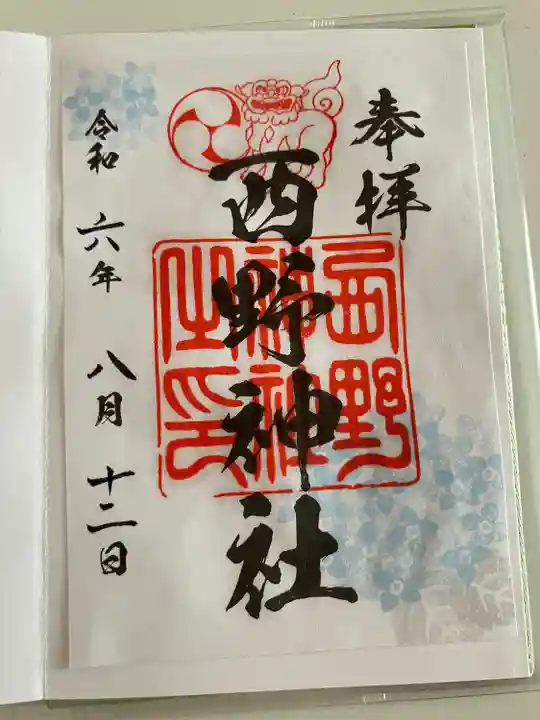 奉拝
西野神社
西野神社之印
令和六年八月十二日